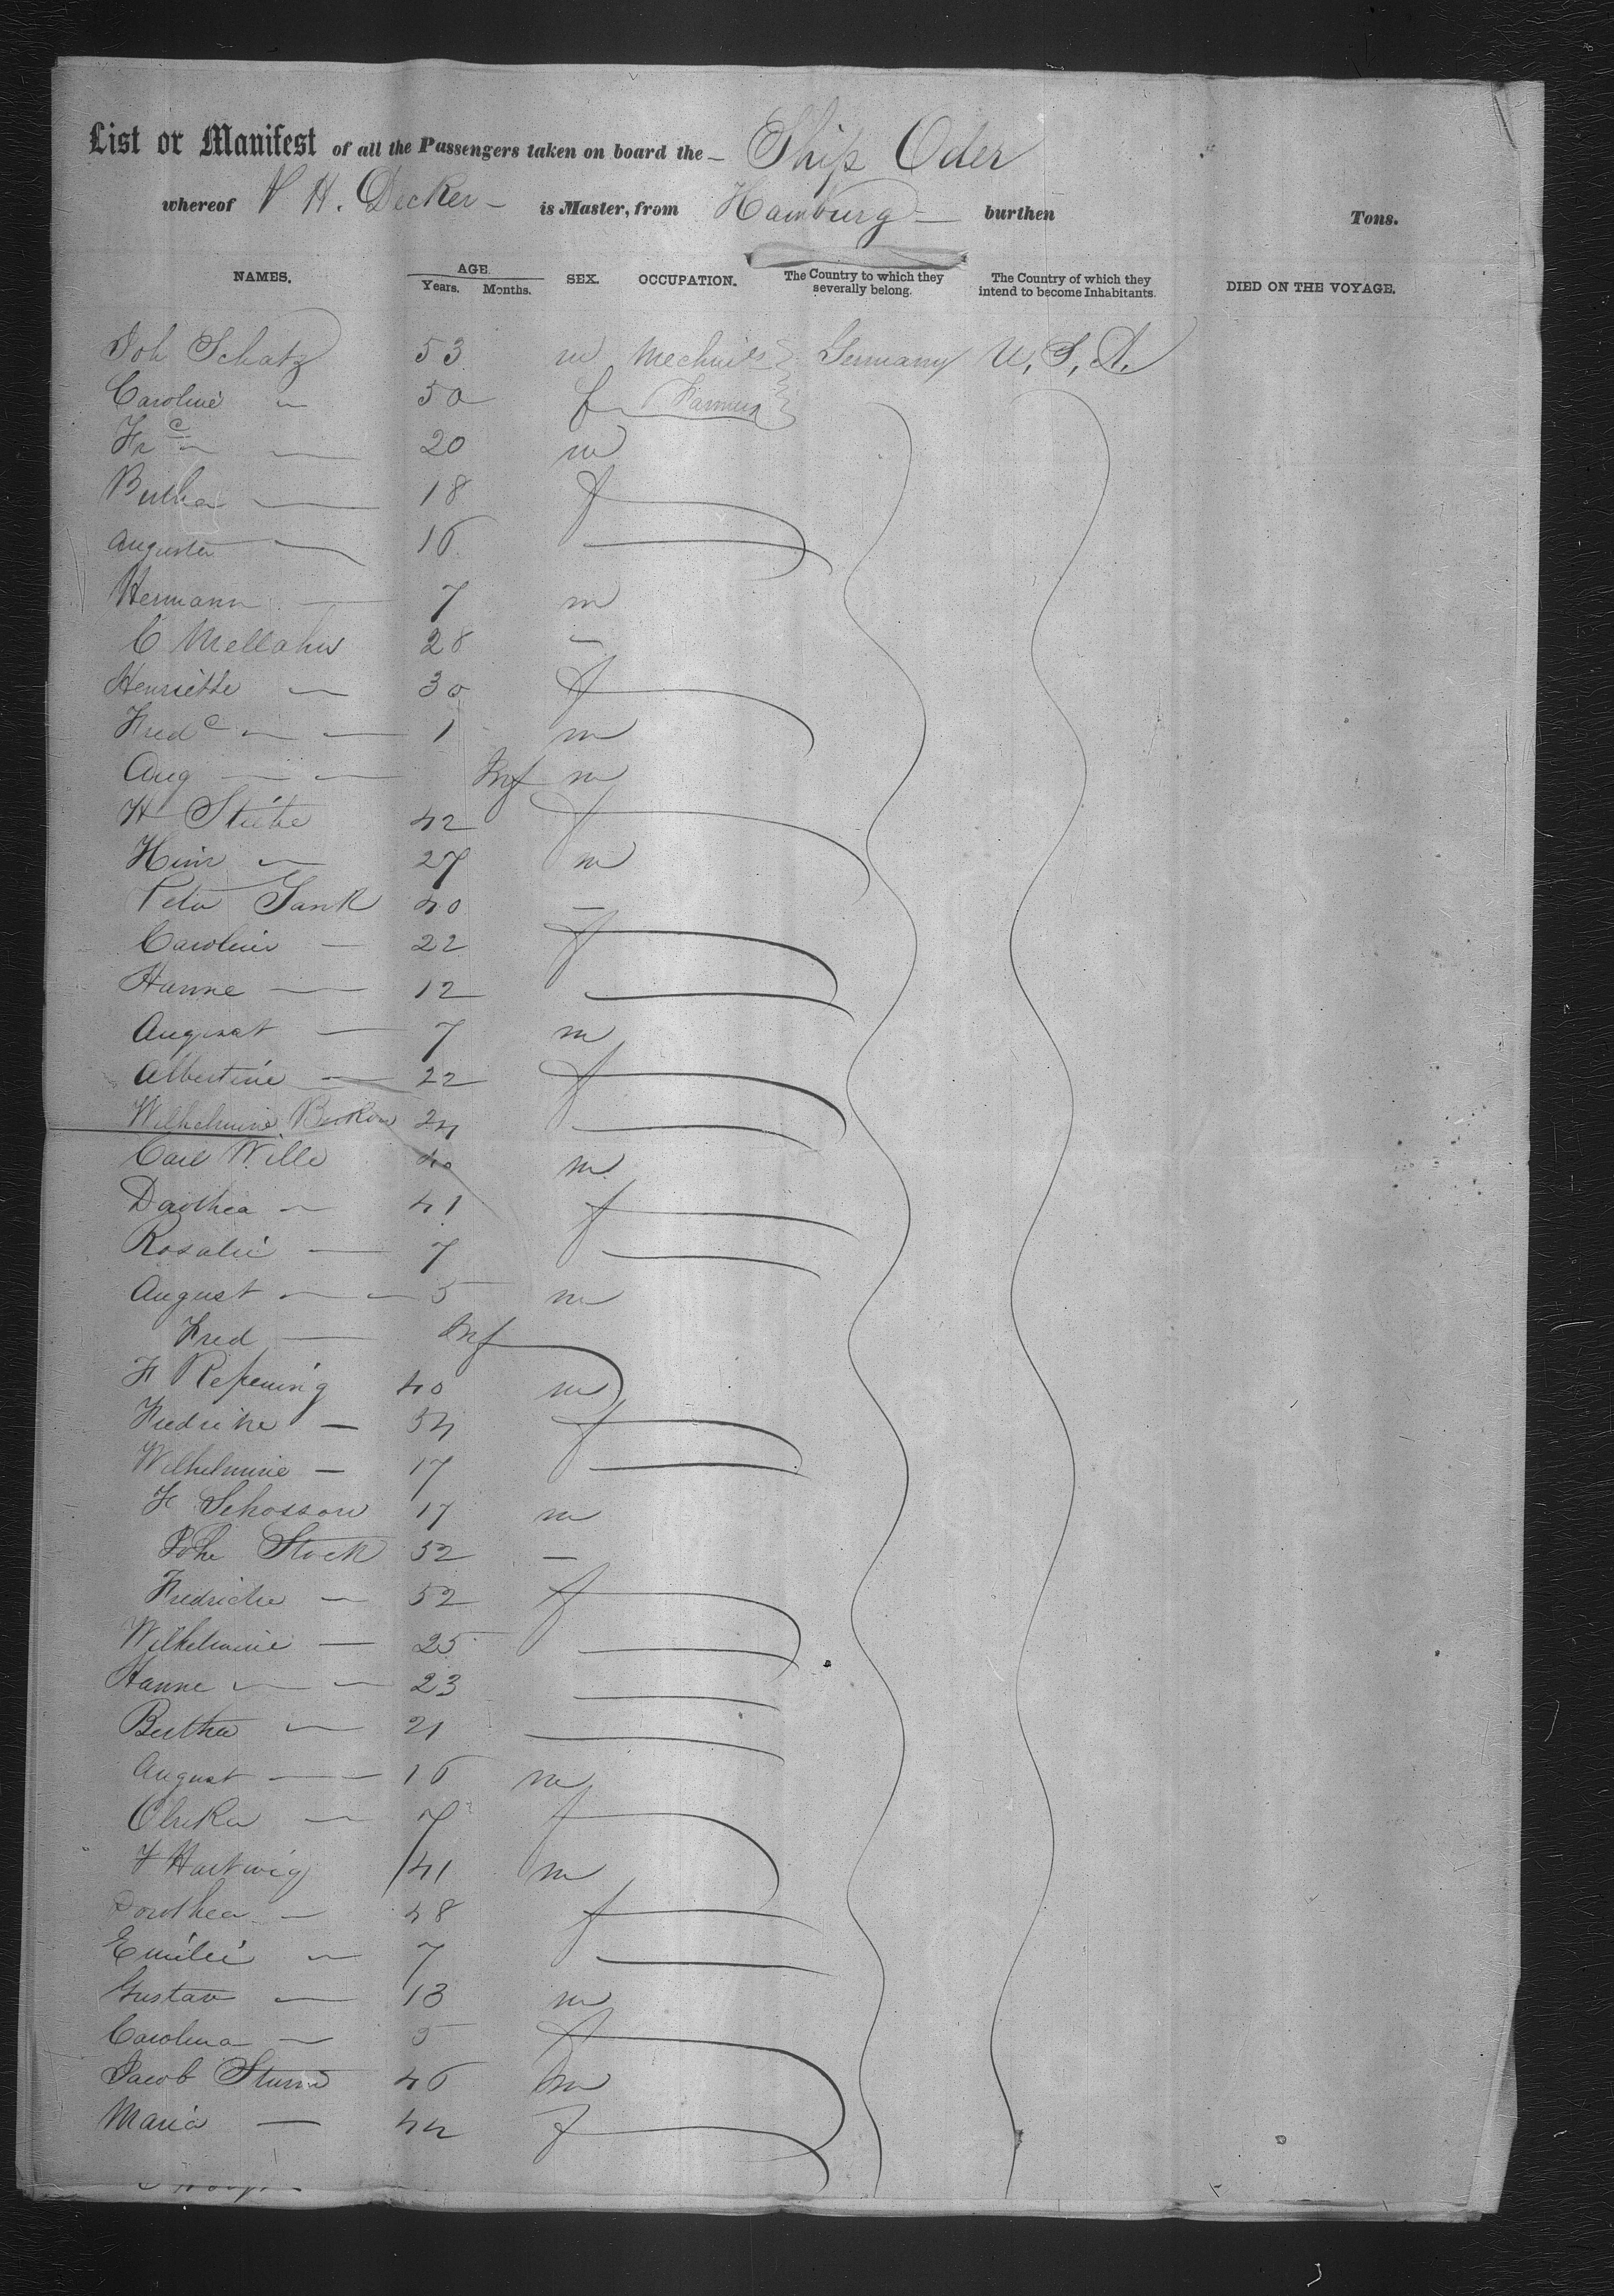 List or Manifest of all the Passengers taken on board the Ship Oder
whereof H. Decker is Master, from Hamburg burthen Tons.
NAMES. AGE. Years. Months. SEX. OCCUPATION. The Country to which they severally belong. The Country of which they intend to become Inhabitants. DIED ON THE VOYAGE.
Joh Schatz 53 m Germany U, S, A,
Caroline 50 f Farmers
Frc 20 m
Bertha 18 f
Augusta 16
Hermann 7 m
C 28 —
Henriette — 30 f
Fredc — 1 m
Aug — Inf m
H 42 f
Heinr — 27 m
Peter Gank 40 —
Caroline — 22 f
Hanne — 12
August — 7 m
Albertine — 22 f
Wilhelmine 24
Carl Wille 40 m
Dorothea — 41 f
Rosalie — 7
August — 5 m
Fred — Inf
F Repening 40 m
Fredrike — 34 f
Wilhelmine — 17
F Schossow 17 m
Joh Stock 52 —
Fredricke — 52 f
Wilhelmine — 25
Hanne — 23
Bertha — 21
August — 16 m
Ulrika — 7 f
F Hartwig 41 m
Dorothea — 48 f
Emilie — 7
Gustav — 13 m
Carolina — 5 f
Jacob Sturm 46 m
Maria — 44 f